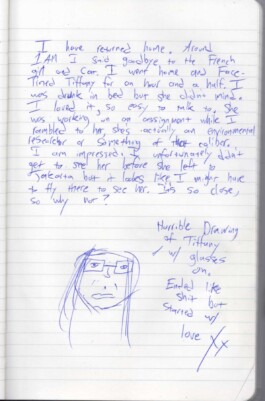 I have returned home. Around
1AM I said goodbye to the French
girl and Car. I went home and Face-
Timed Tiffany for an hour and a half. I
was drunk in bed but she didn't mind.
I loved it, so easy to talk to. She
was working on an assignment while I
rambled to her, she's actually an environmental
researcher or something of that caliber.
I am impressed. I unfortunately didn't
get to see her before she left to
Jakarta but it looks like I might have
to fly there to see her. It's so close,
so why not?
Horrible Drawing
of Tiffany
w/ glasses
on.
Ended like
shit but
started w/
love XX